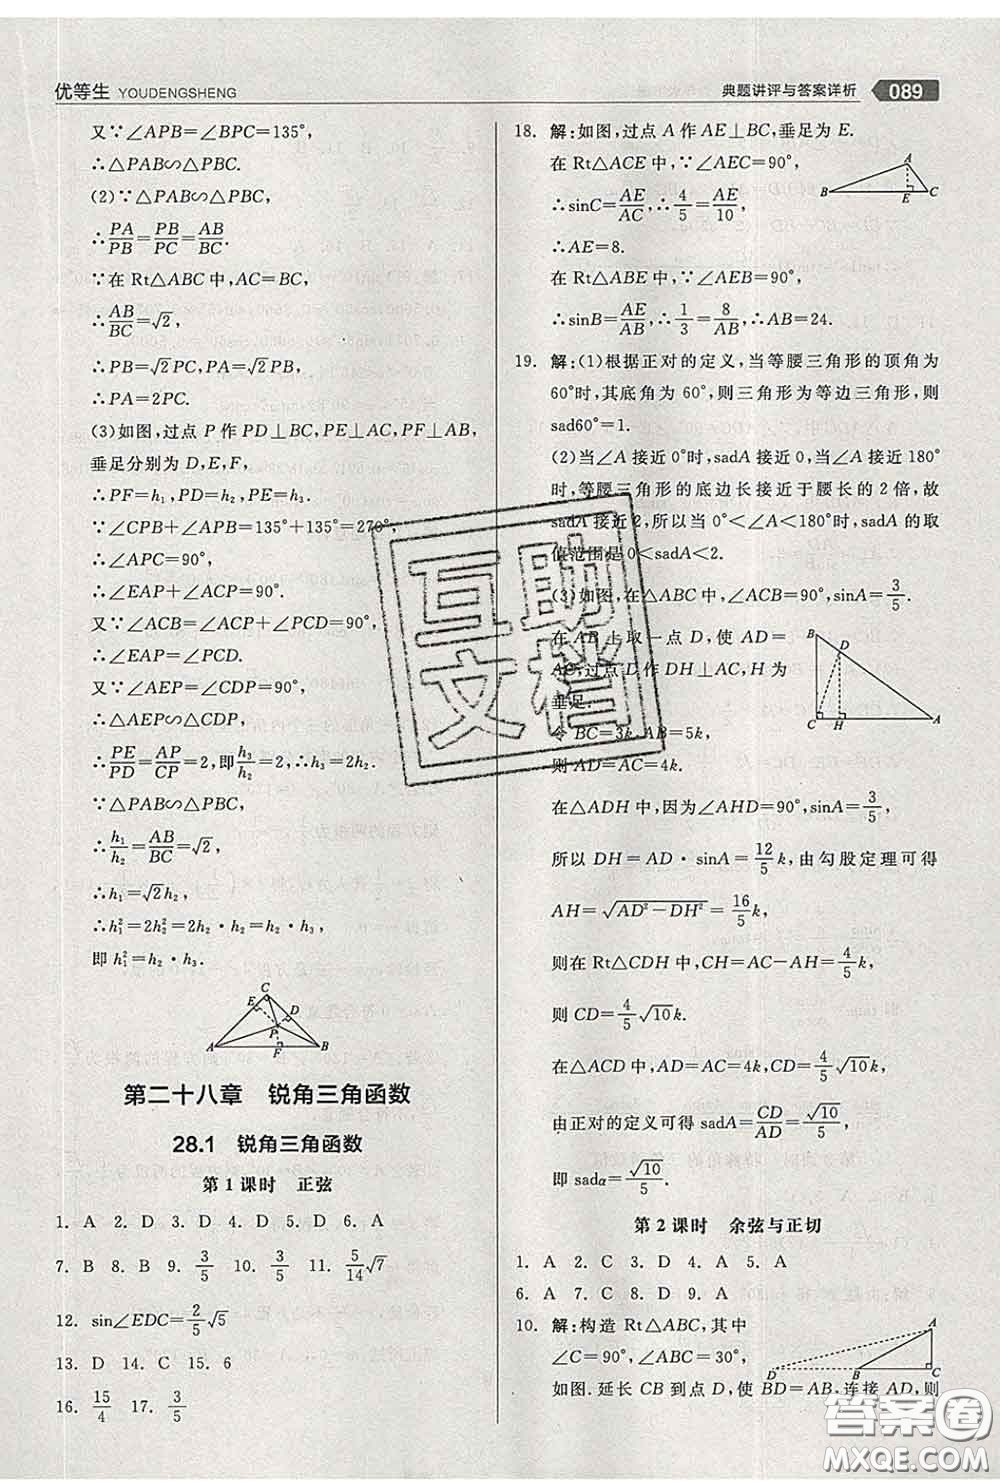 优等生 YOUDENGSHENG
典题讲评与答案详析 089
又∵∠APB=∠BPC=135°,
∴△PAB∽△PBC.
(2)∵△PAB∽△PBC,
∴PA/PB=PB/PC=AB/BC.
∵在 Rt△ABC 中,AC=BC,
∴AB/BC=√2,
∴PB=√2PC,PA=√2PB,
∴PA=2PC.
(3)如图,过点 P 作 PD⊥BC,PE⊥AC,PF⊥AB,
垂足分别为 D,E,F,
∴PF=h₁,PD=h₂,PE=h₃.
∵∠CPB+∠APB=135°+135°=270°,
∴∠APC=90°,
∴∠EAP+∠ACP=90°.
又∵∠ACB=∠ACP+∠PCD=90°,
∴∠EAP=∠PCD.
又∵∠AEP=∠CDP=90°,
∴△AEP∽△CDP,
∴PE/PD=AP/CP=2,即h₃/h₂=2,∴h₃=2h₂.
∵△PAB∽△PBC,
∴h₁/h₂=AB/BC=√2,
∴h₁=√2h₂,
∴h₁²=2h₂²=2h₂·h₂=h₂·h₃.
即 h₁²=h₂·h₃.
C
E
D
P
A
F
B
第二十八章 锐角三角函数
28.1 锐角三角函数
第 1 课时 正弦
1. A 2. D 3. D 4. D 5. D 6. A
7. B 8. D 9. 3/5 10. 3/5 11. 5/14√7
12. sin∠EDC=2/5√5
13. D 14. C 15. 6
16. 15/4 17. 3/5
18. 解:如图,过点 A 作 AE⊥BC,垂足为 E.
在 Rt△ACE 中,∵∠AEC=90°,
∴sinC=AE/AC,∴4/5=AE/10,
∴AE=8.
在 Rt△ABE 中,∵∠AEB=90°,
∴sinB=AE/AB,∴1/3=8/AB,∴AB=24.
A
B
E
C
19. 解:(1)根据正对的定义,当等腰三角形的顶角为
60°时,其底角为 60°,则三角形为等边三角形,则
sad60°=1.
(2)当∠A 接近 0°时,sadA 接近 0,当∠A 接近 180°
时,等腰三角形的底边长接近于腰长的 2 倍,故
sadA 接近 2,所以当 0°<∠A<180°时,sadA 的取
值范围是 0<sadA<2.
(3)如图,在△ABC 中,∠ACB=90°,sinA=3/5.
在 AB 上取一点 D,使 AD=
AC,过点 D 作 DH⊥AC,H 为
垂足.
令 BC=3k,AB=5k,
则 AD=AC=4k.
B
D
C
H
A
在△ADH 中,因为∠AHD=90°,sinA=3/5,
所以 DH=AD·sinA=12/5k,由勾股定理可得
AH=√(AD²-DH²)=16/5k.
则在 Rt△CDH 中,CH=AC-AH=4/5k,
则 CD=4/5√10k.
在△ACD 中,AD=AC=4k,CD=4/5√10k,
由正对的定义可得 sadA=CD/AD=√10/5,
即 sadα=√10/5.
第 2 课时 余弦与正切
1. A 2. C 3. D 4. A 5. A
6. A 7. C 8. D 9. A
10. 解:构造 Rt△ABC,其中
∠C=90°,∠ABC=30°,
如图.延长 CB 到点 D,使 BD=AB,连接 AD,则
A
D
B
C
互助
文档
答案圈
MXQE.COM